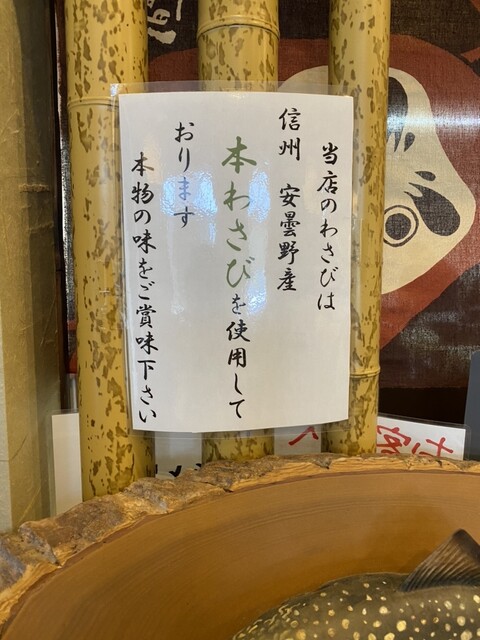 当店のわさびは
信州 安曇野産
本わさびを使用して
おります
本物の味をご賞味下さい